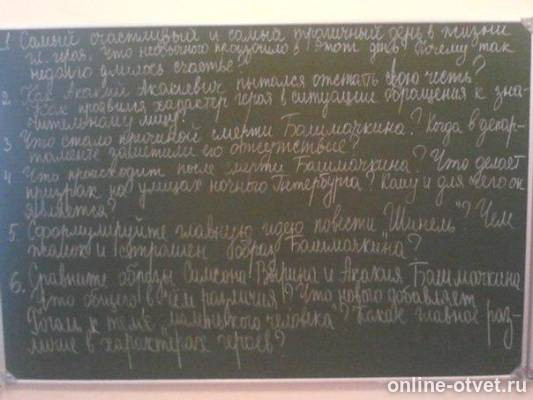 1 Самый счастливый и самый трагичный день в жизни
гл. героя. Что необычного произошло в этот день? Почему так
недолго длилось счастье?
2. Как Акакий Акакиевич пытался отстоять свою честь?
Как проявился характер героя в ситуации обращения к зна-
чительному лицу?
3 Что стало причиной смерти Башмачкина? Когда в депар-
таменте заметили его отсутствие?
4 Что происходит после смерти Башмачкина? Что делает
призрак на улицах ночного Петербурга? Кому и для чего он
является?
5. Сформулируйте главную идею повести "Шинель"? Чем
жалок и страшен образ Башмачкина?
6. Сравните образы Самсона Вырина и Акакия Башмачкина
Что общего? В чём различия? Что нового добавляет
Гоголь к теме "маленького человека"? Какое главное раз-
личие в характерах героев?
online-otvet.ru